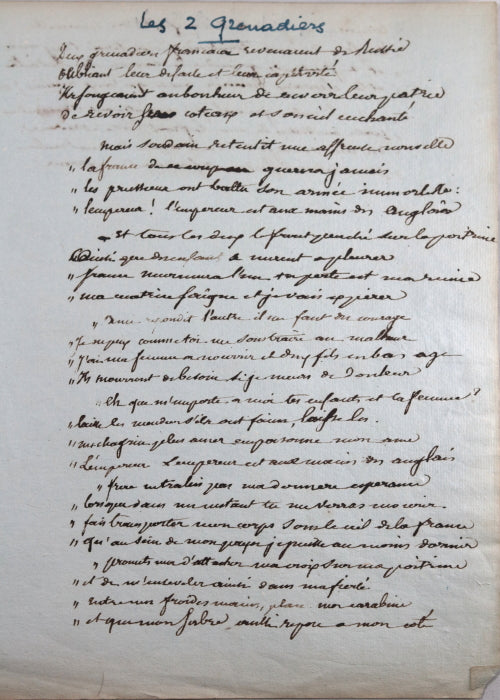 Les 2 Grenadiers
Deux grenadiers francais revenaient de Russie
Oubliant leur defaite et leur captivité
Ils songeaient au bonheur de revoir leur patrie
de revoir ses coteaux et son ciel enchanté
Mais soudain retentit une affreuse nouvelle
" la france de guerra jamais
" les prussiens ont battu son armée immortelle :
" l'empereur ! l'empereur est aux mains des anglais
- Et tous les deux le front penché sur la poitrine
Ainsi que des enfants se mirent a pleurer
" france murmura l'un ta perte est ma ruine
" ma cicatrice saigne et je vais expirer
" ami repondit l'autre il me faut du courage
" Je ne puis comme toi me soustraire au malheur
" J'ai ma femme a nourrir et deux fils en bas age
" Ils mourront de besoin si je meurs de douleur
" Eh que m'importe a moi tes enfants et ta femme ?
" laisse les mendier s'ils ont faim, laisse les.
" un chagrin plus amer empoisonne mon ame
" L'empereur L'empereur est aux mains des anglais
" frere ne trahis pas ma derniere esperance
" lorsque dans un instant tu me verras mourir
" fais transporter mon corps sous le ciel de la france
" qu'au sein de mon pays je puisse au moins dormir
" promets moi d'attacher ma croix sur ma poitrine
" et de m'ensevelir ainsi dans ma fierté
" entre mes froides mains, place ma carabine
" et que mon sabre aussi repose a mon coté